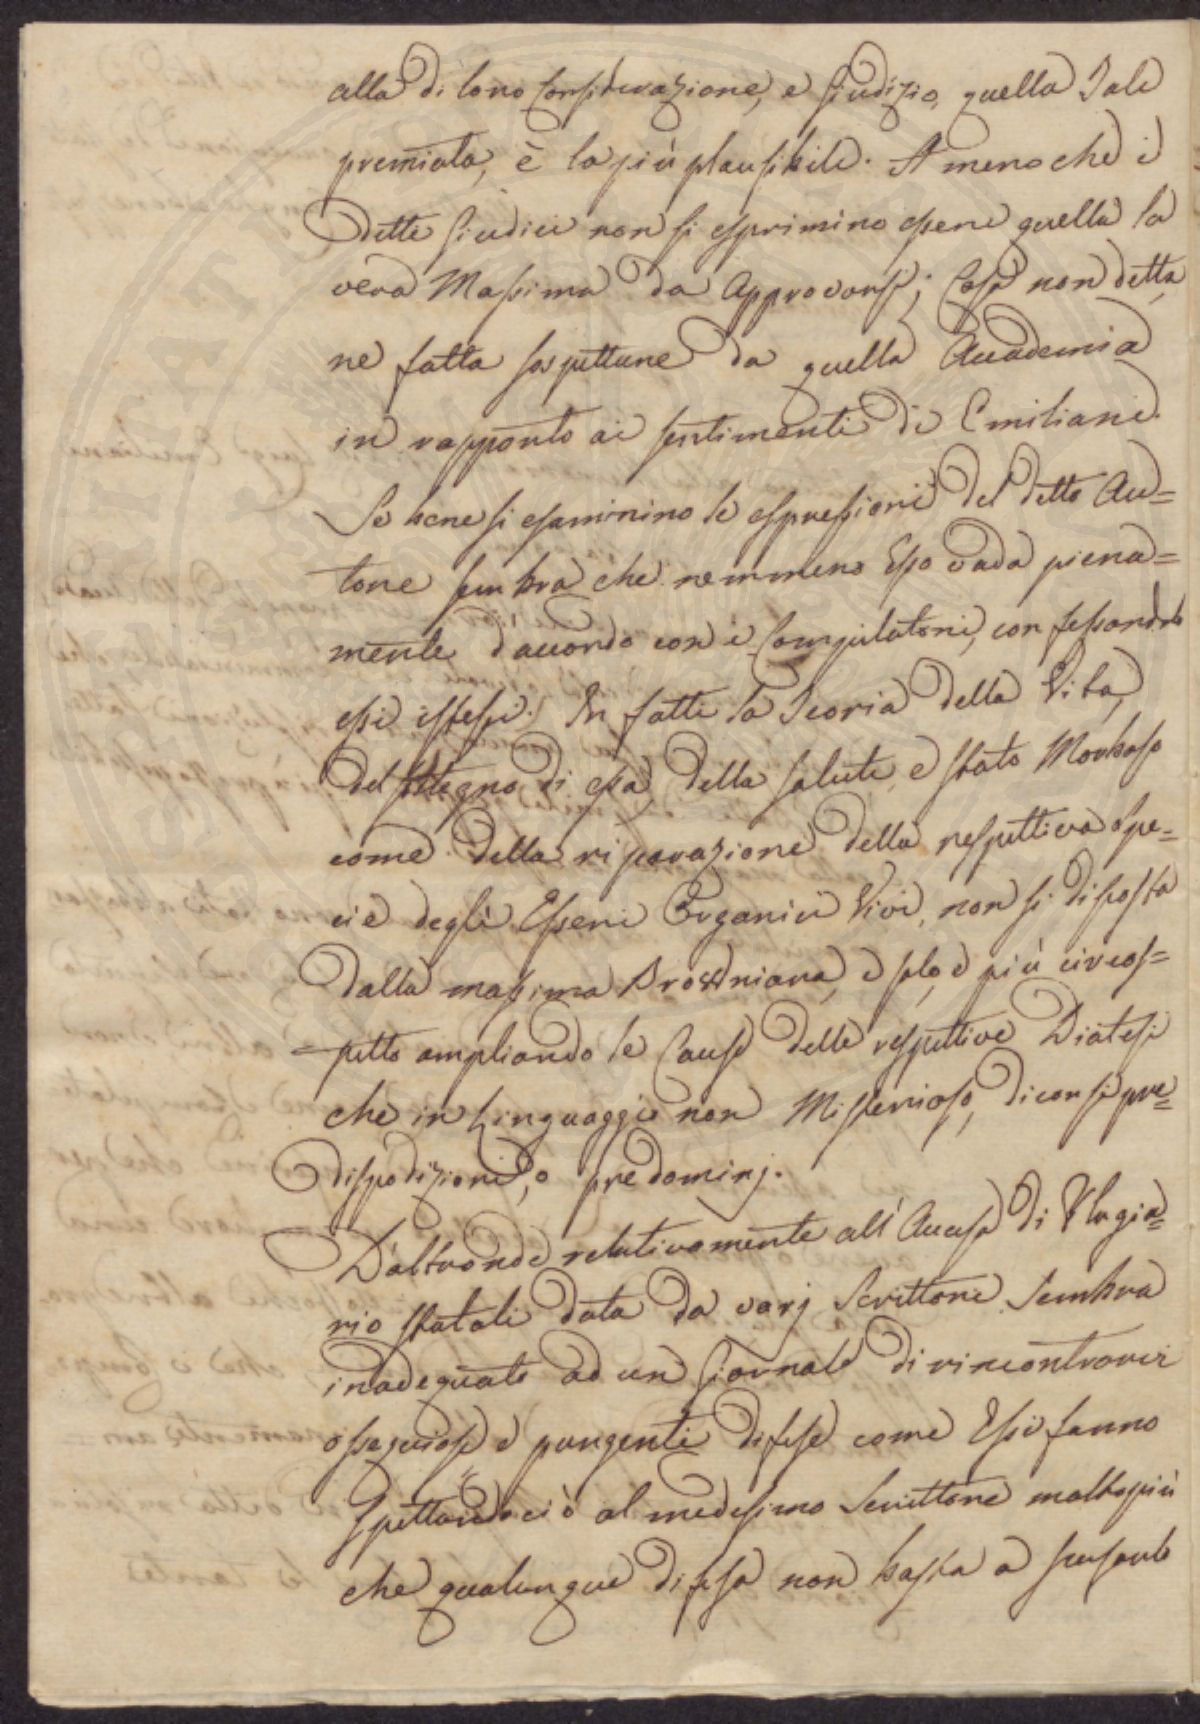 alla di loro Considerazione, e Giudizio, quella Tale
premiata, è la più plausibile. A meno che i
detti Giudici non si esprimino essere quella la
vera Massima da Approvarsi; Cosa non detta,
ne fatta sospettare da quella Accademia
in rapporto ai sentimenti di Emiliani.
Se bene si esaminino le espressioni del detto Au=
tore sembra che nemmeno Esso vada piena=
mente d'accordo con i Compilatori, confessandolo
essi istessi. In fatti la Teoria della Vita,
del sostegno di essa, della salute, e stato Morboso
come della riparazione della respettiva Spe=
cie degli Esseri Organici Vivi, non si discosta
dalla massima Browniana, e solo, è più circos=
=petto ampliando le Cause delle respettive Diatesi
che in Linguaggio non Misterioso, diconsi pre=
disposizioni, o predominj.
D'altronde relativamente all'Accusa di Plagia=
rio statali data da varj Scrittori Sembra
inadequato ad un Giornale di rincontrarci
ossequiose e pungenti difese come Essi fanno
Spettando ciò al medesimo Scrittore molto più
che qualunque difesa non basta a scusarlo